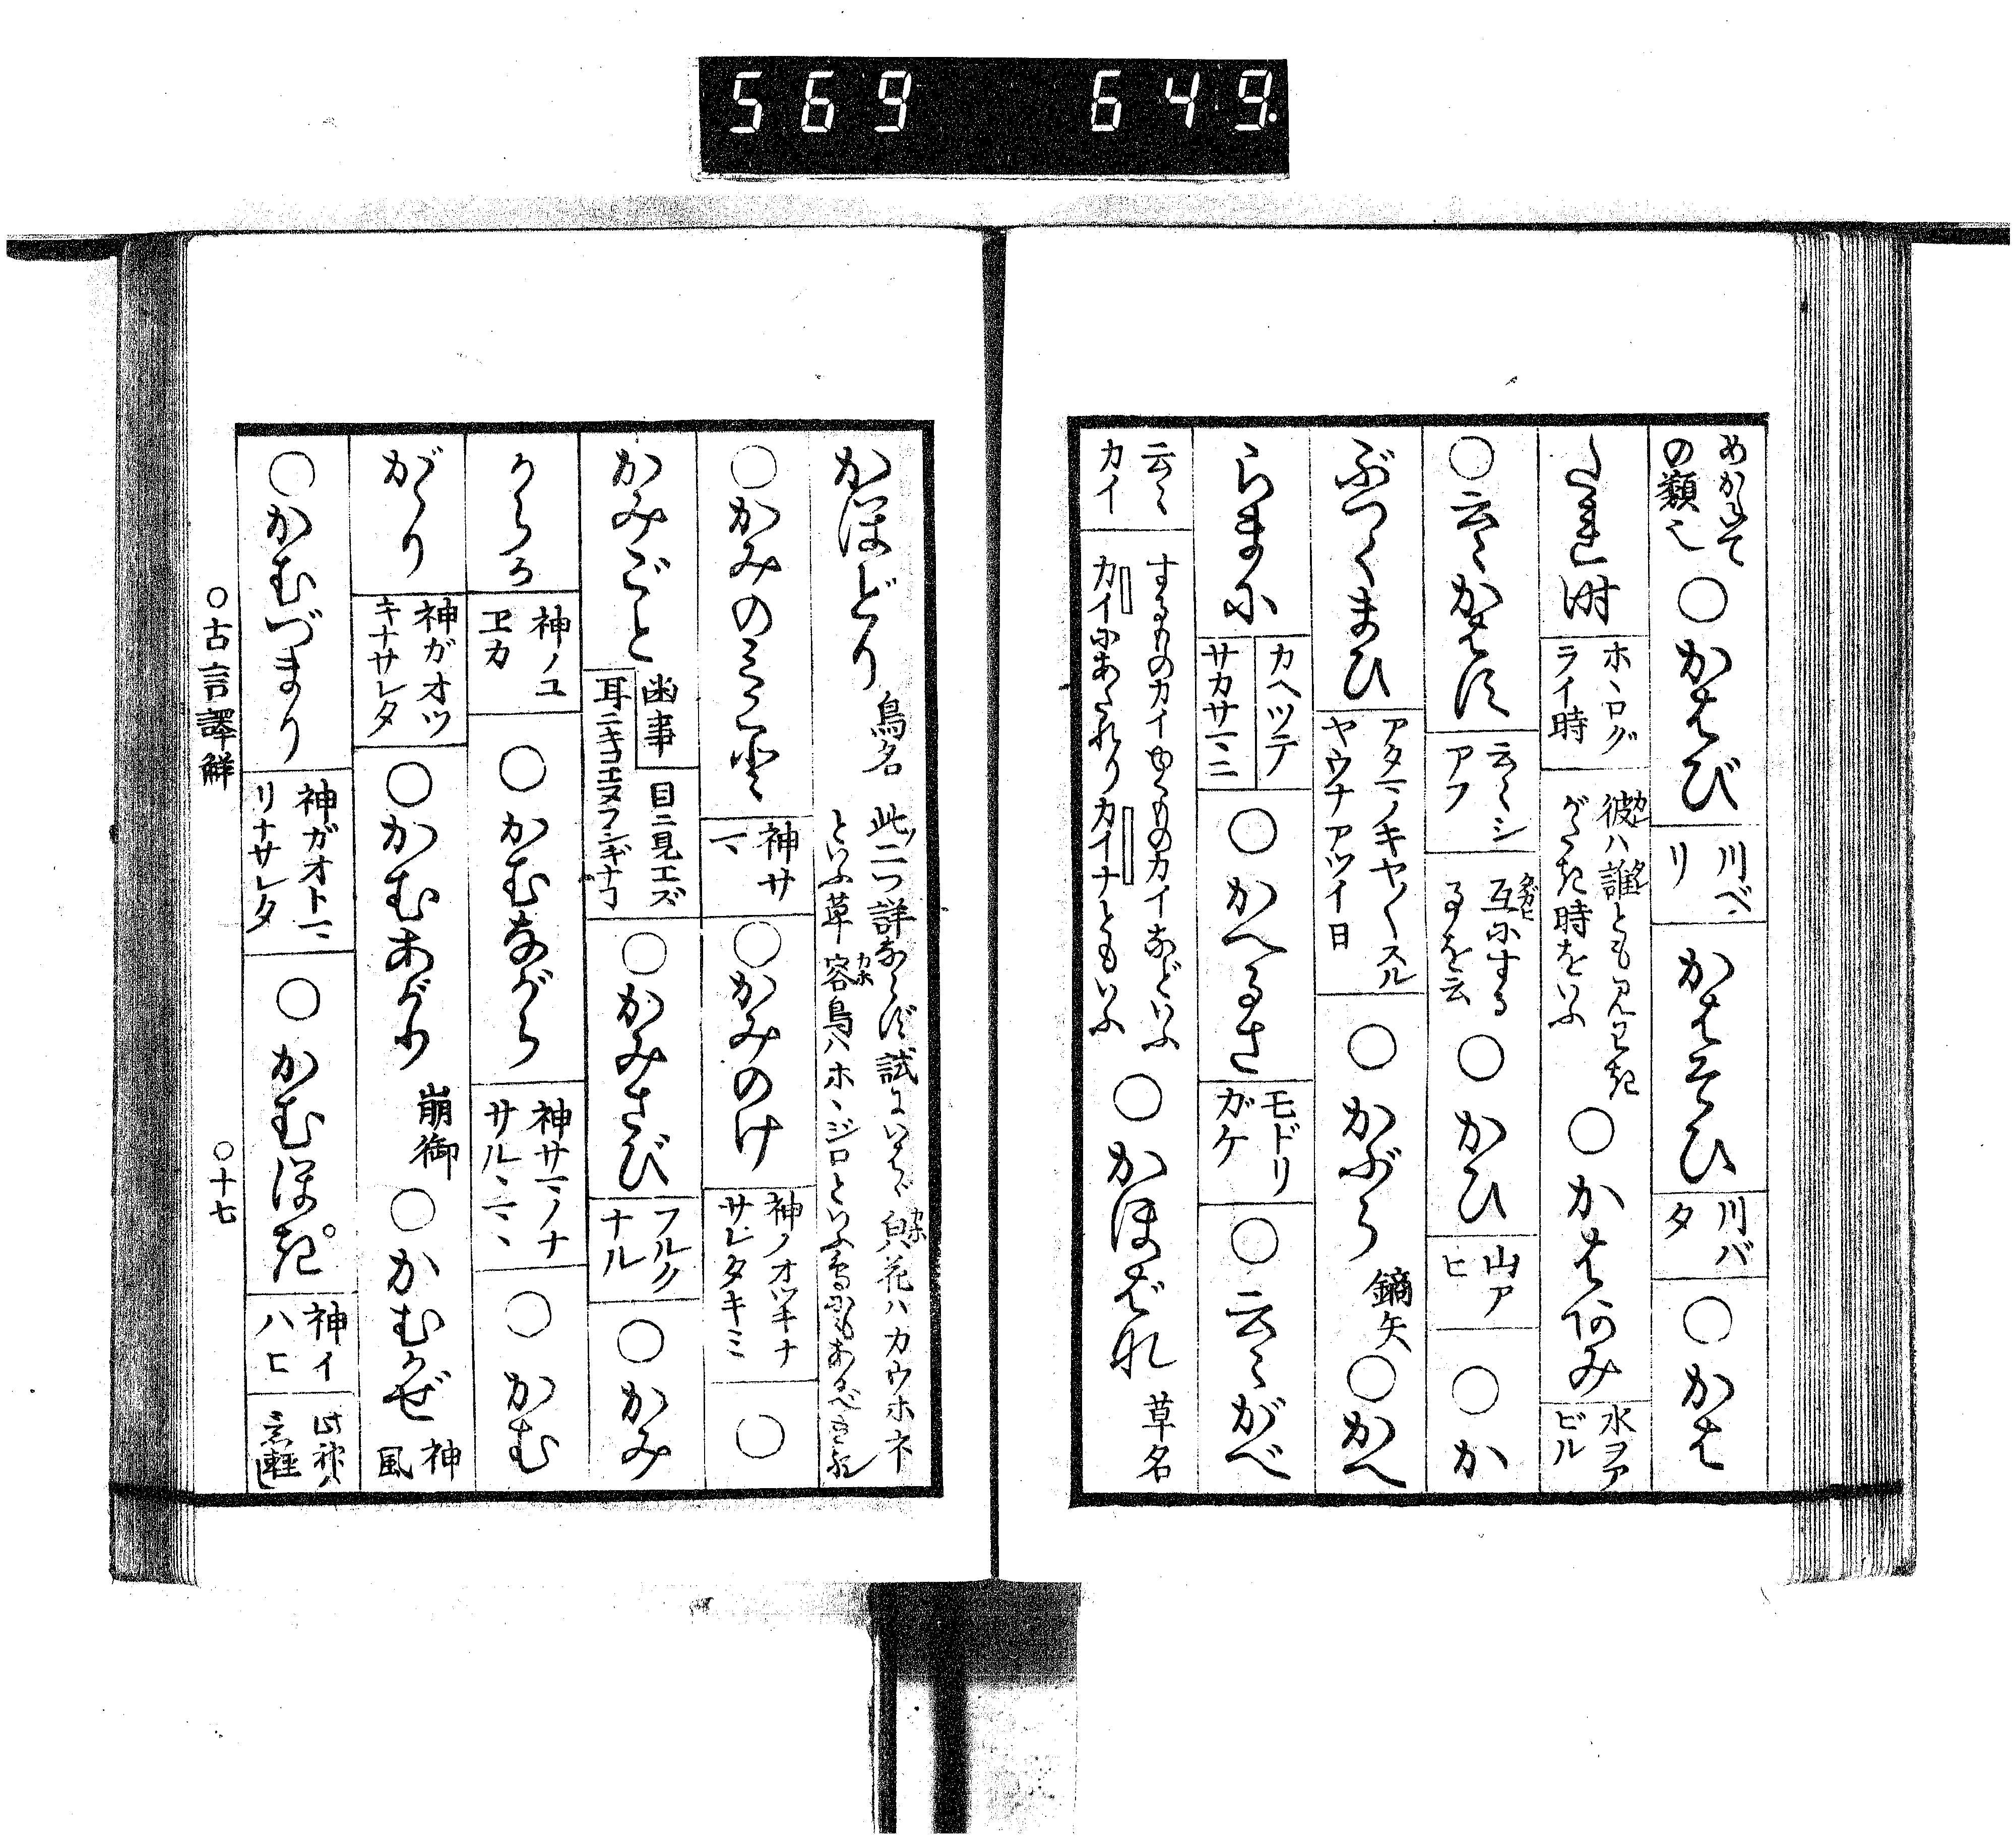 569 649
めかれて
の類也
○かはび
川ベ
リ
かはそひ
川バ
タ
○かは
たれ時
ホヽログ
ライ時
彼ハ誰とも見わき
がたき時をいふ
○かはあみ
水ヲア
ビル
○云々かはす
云々シ
アフ
互にする
るを云
○かひ
山ア
ヒ
○か
ぶつくまひ
ヤウナアツイ日
○かぶら
鏑矢
○かへ
らまに
カヘツテ
サカサマニ
○かへるさ
モドリ
ガケ
○云々がべ
云々
カイ
するものカイ
ものカイなどいふ
カイにあたれりカイナともいふ
○かほばれ
草名
かほどり
鳥名
此二つ詳ならず試にいはゞ㒵花ハカウホネ
といふ草容鳥ハホヽジロといふ
○かみのみこと
神サ
マ
○かみのけ
神ノオツキナ
サレタキミ
○
かみごと
幽事
目ニ見エズ
耳ニキコエヌフシギナコ
○かみさび
フルク
ナル
○かみ
からろ
神ノユ
ヱカ
○かむながら
神サマノナ
サルヽマヽ
○かむ
がゝり
神ガオツ
キナサレタ
○かむあがり
崩御
○かむかぜ
神
風
○かむづまり
神ガオトマ
リナサレタ
○かむほぎ
神イ
ハヒ
○古言譯解
○十七